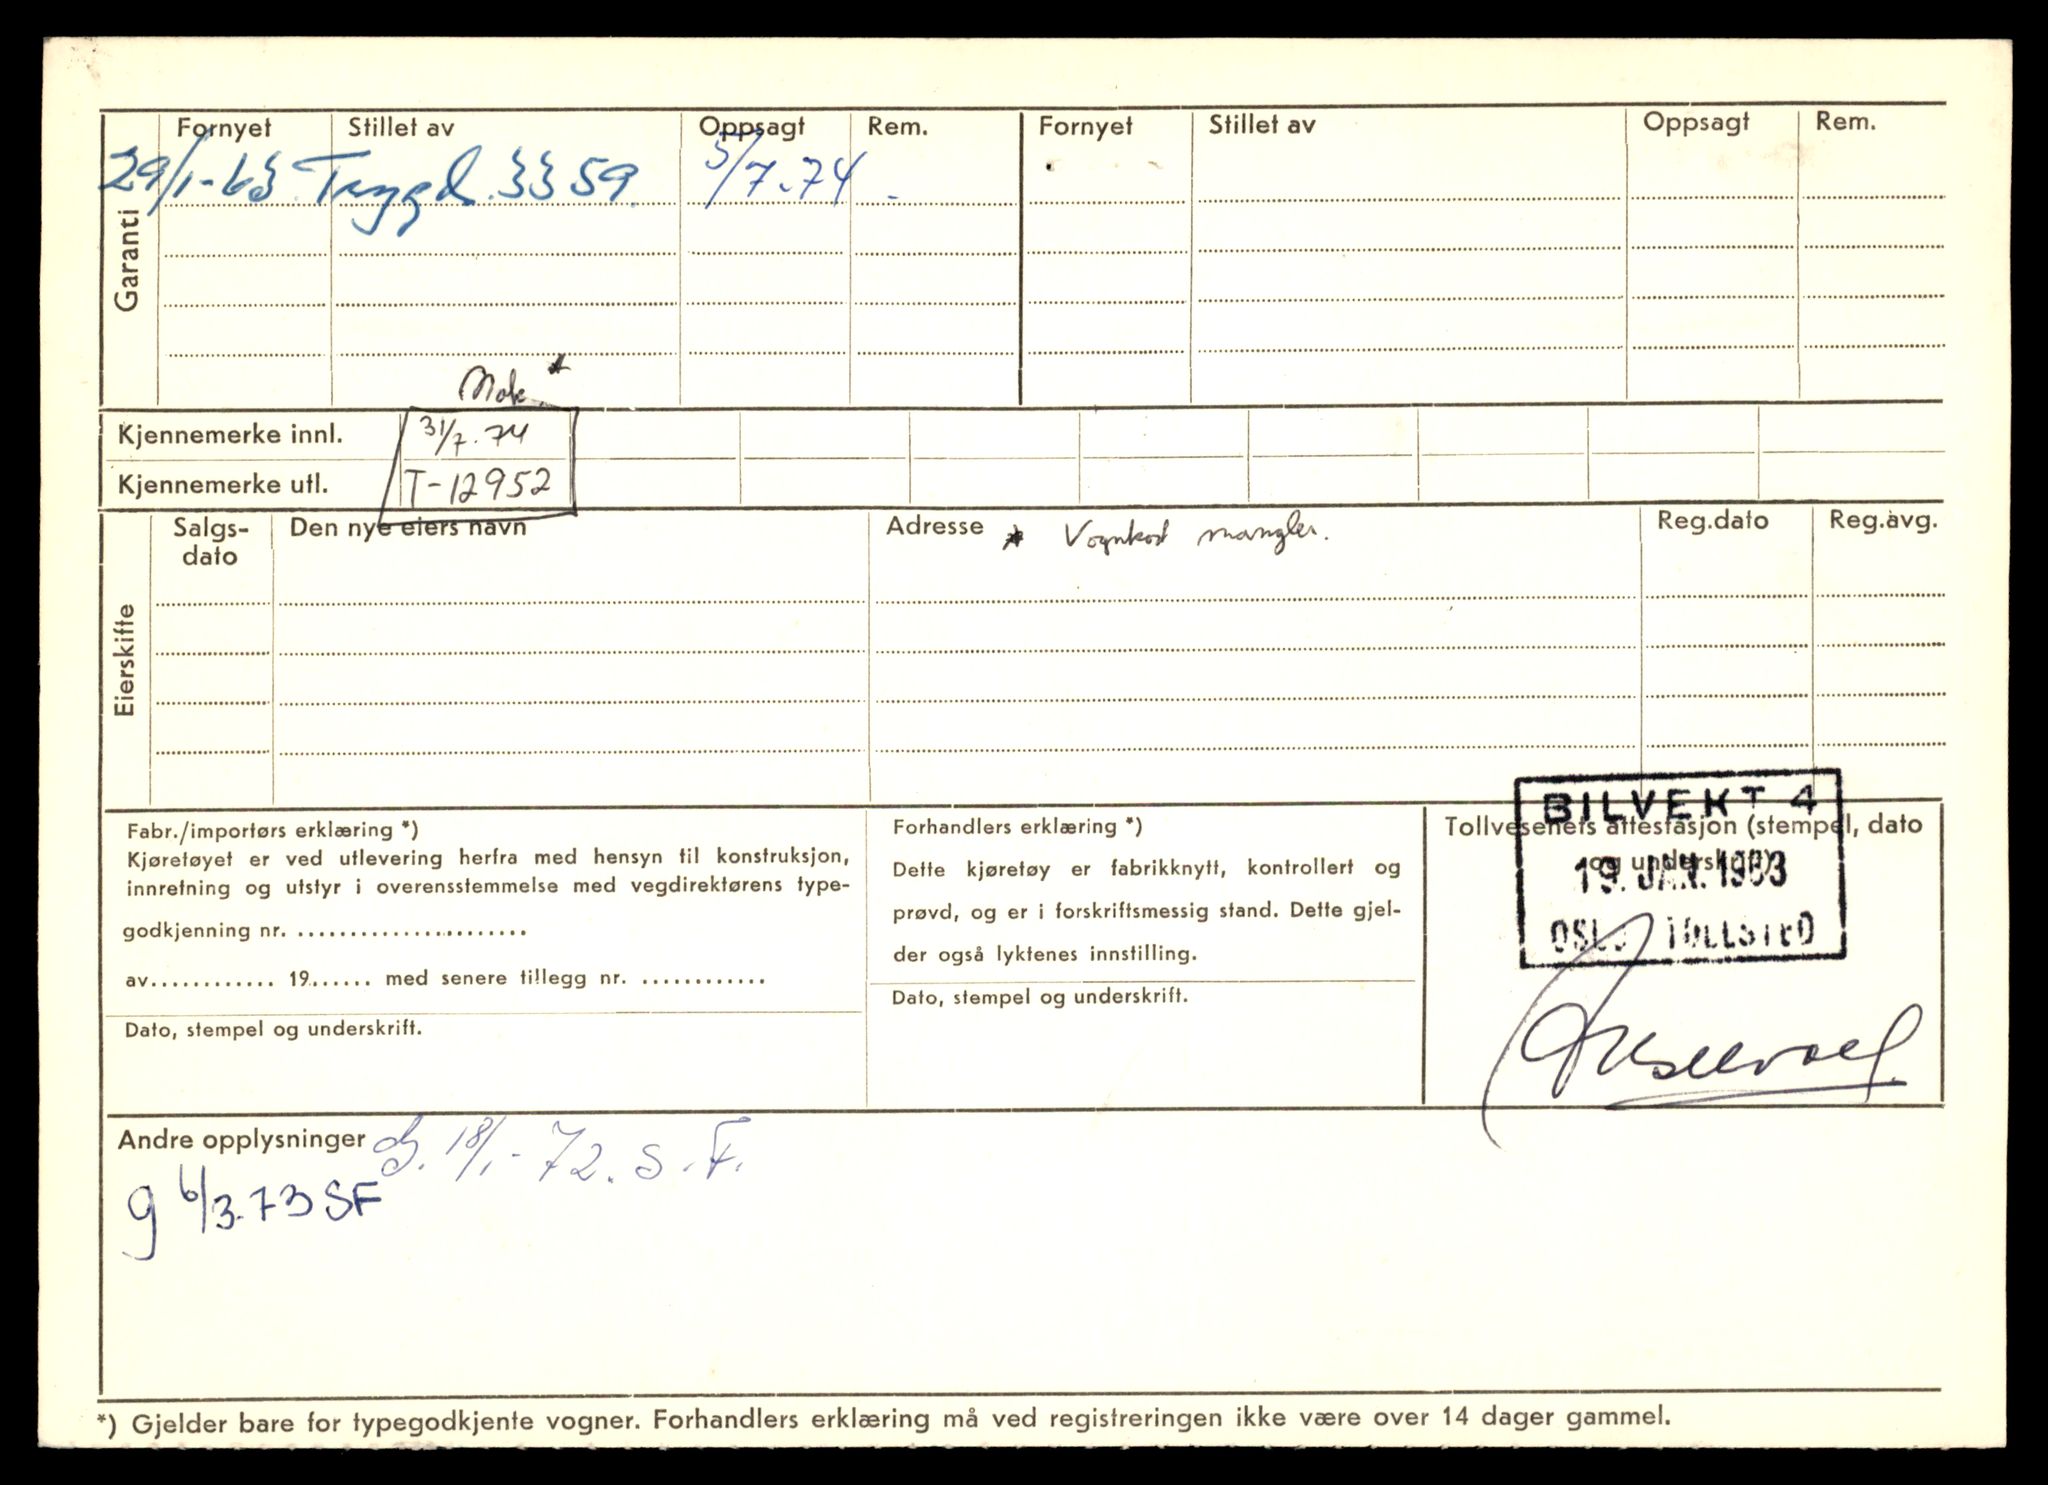 Garanti
Fornyet Stillet av Oppsagt Rem. Fornyet Stillet av Oppsagt Rem.
29/1-63. Trygd. 3359. 5/7.74 -
Mok *
Kjennemerke innl. 31/7.74
Kjennemerke utl. T-12952
Eierskifte
Salgs-dato Den nye eiers navn Adresse * Vognkod mangler. Reg.dato Reg.avg.
Fabr./importørs erklæring *)
Kjøretøyet er ved utlevering herfra med hensyn til konstruksjon,
innretning og utstyr i overensstemmelse med vegdirektørens type-
godkjenning nr. .......................
av............ 19...... med senere tillegg nr. ............
Dato, stempel og underskrift.
Forhandlers erklæring *)
Dette kjøretøy er fabrikknytt, kontrollert og
prøvd, og er i forskriftsmessig stand. Dette gjel-
der også lyktenes innstilling.
Dato, stempel og underskrift.
Tollvesenets attestasjon (stempel, dato
og underskrift)
BILVEKT 4
19. JAN. 1963
OSLO TOLLSTED
Andre opplysninger G. 18/1-72. S.F.
g 6/3.73 SF
*) Gjelder bare for typegodkjente vogner. Forhandlers erklæring må ved registreringen ikke være over 14 dager gammel.